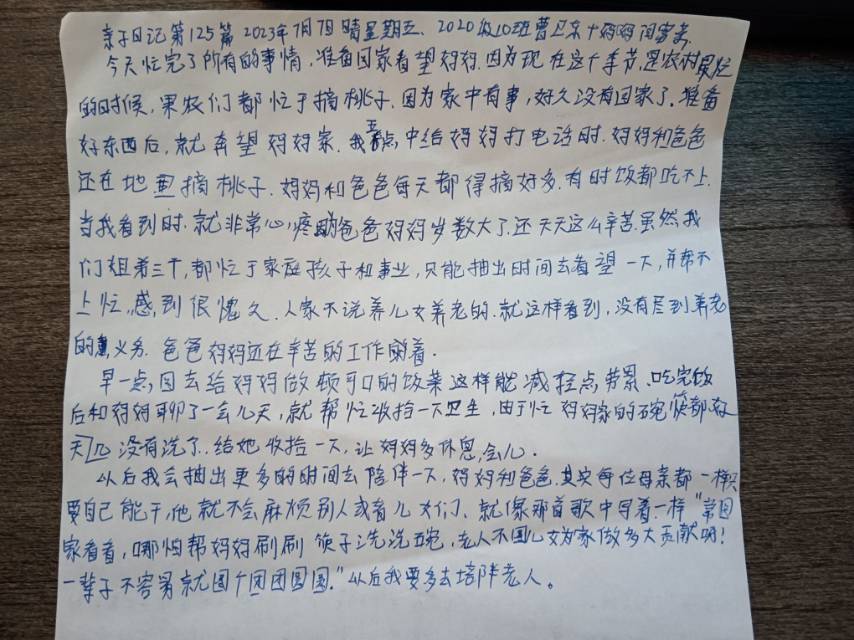 亲子日记第125篇 2023年7月7日晴星期五、2020级10班曹卫东十妈妈闫富美
今天忙完了所有的事情,准备回家看望妈妈.因为现在这个季节,是农村最忙
的时候,果农们都忙于摘桃子.因为家中有事,好久没有回家了.准备
好东西后,就奔望妈妈家.我五点,中给妈妈打电话时.妈妈和爸爸
还在地里摘桃子.妈妈和爸爸每天都得摘好多.有时饭都吃不上.
当我看到时.就非常心疼爸爸妈妈岁数大了.还天天这么辛苦.虽然我
们姐弟三个,都忙于家庭孩子和事业,只能抽出时间去看望一下,并帮不
上忙,感到很愧欠.人家不说养儿女养老的.就这样看到,没有尽到养老
的义务.爸爸妈妈还在辛苦的工作着.
早一点,回去给妈妈做顿可口的饭菜这样能减轻点劳累、吃完饭
后和妈妈聊了一会儿天,就帮忙收拾一下卫生,由于忙妈妈家的碗筷都好
几天没有洗了.给她收拾一下,让妈妈多休息,会儿.
以后我会抽出更多的时间去陪伴一下,妈妈和爸爸.其实每位母亲都一样只
要自己能干,他就不会麻烦别人或者儿女们、就像那首歌中写着一样"常回
家看看,哪怕帮妈妈刷刷筷子洗洗碗,老人不图儿女为家做多大贡献呀!
一辈子不容易就图个团团圆圆."以后我要多去培陪老人。